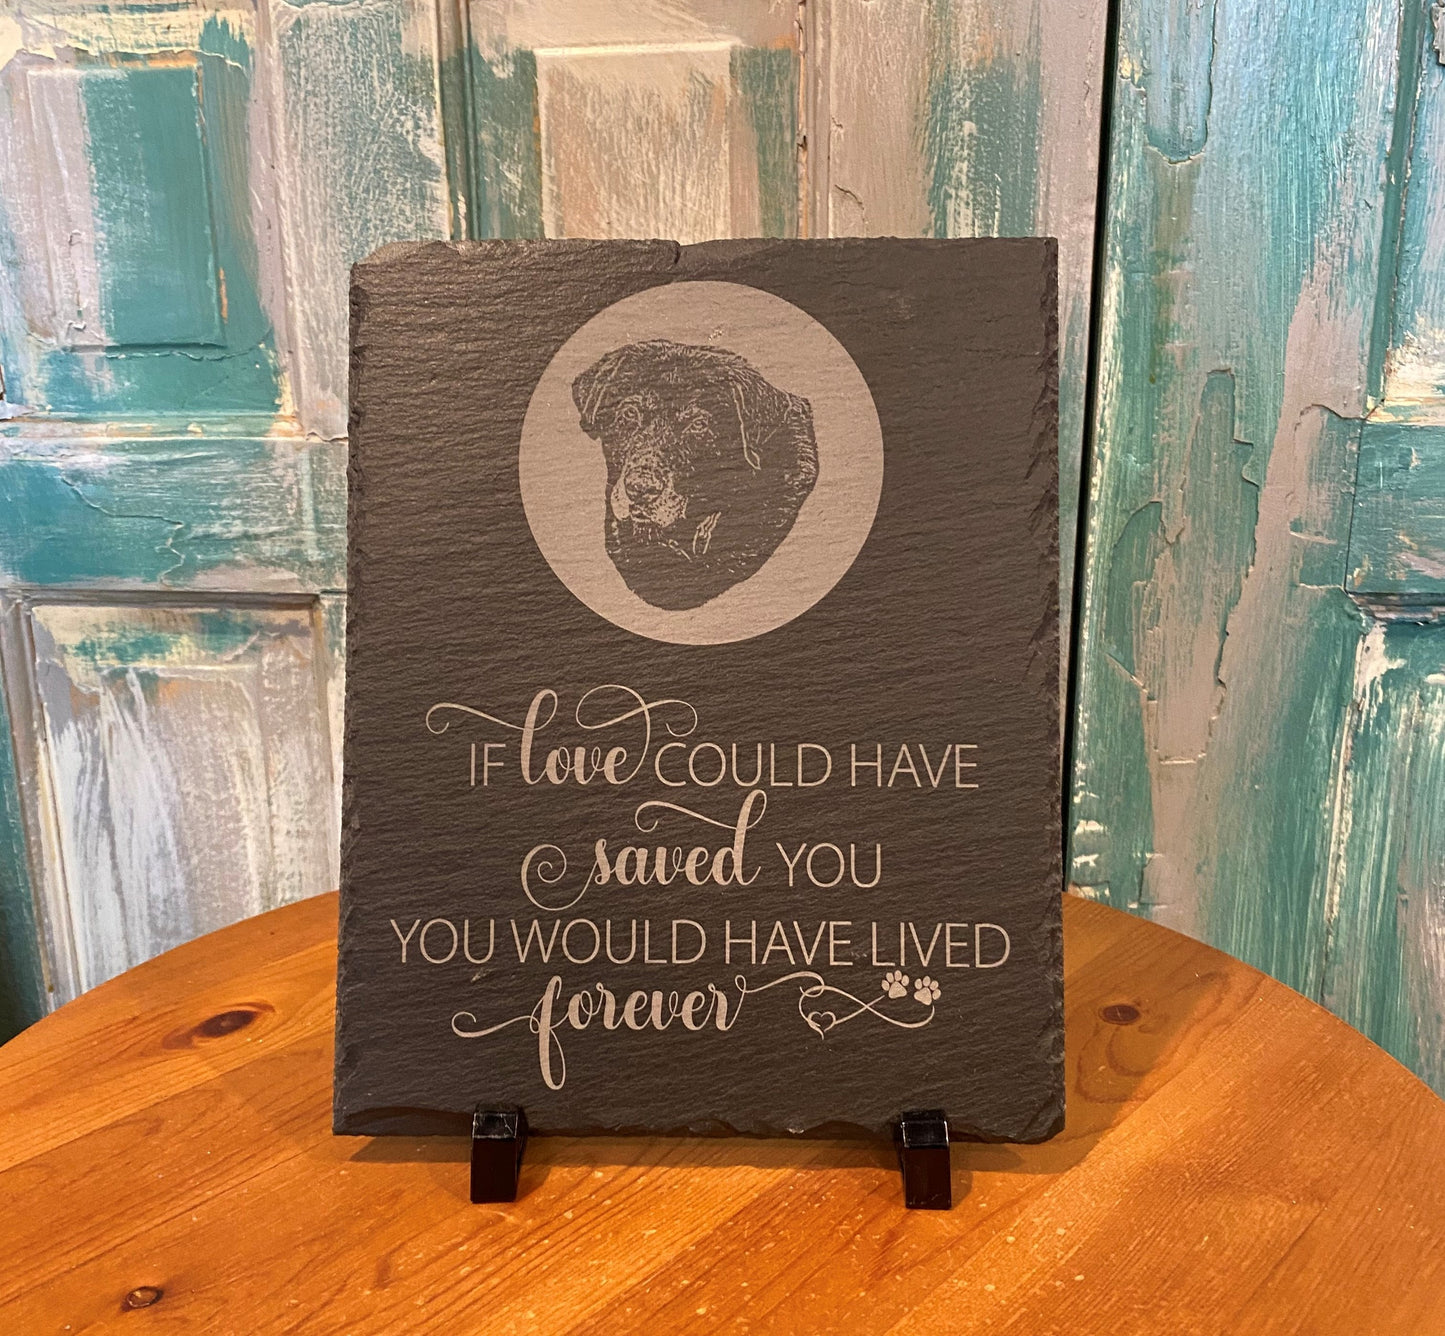 IF love COULD HAVE
saved YOU
YOU WOULD HAVE LIVED
forever